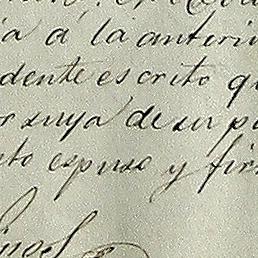 ia á la anteri
dente escrito q
r suya de su p
to espuso y fir